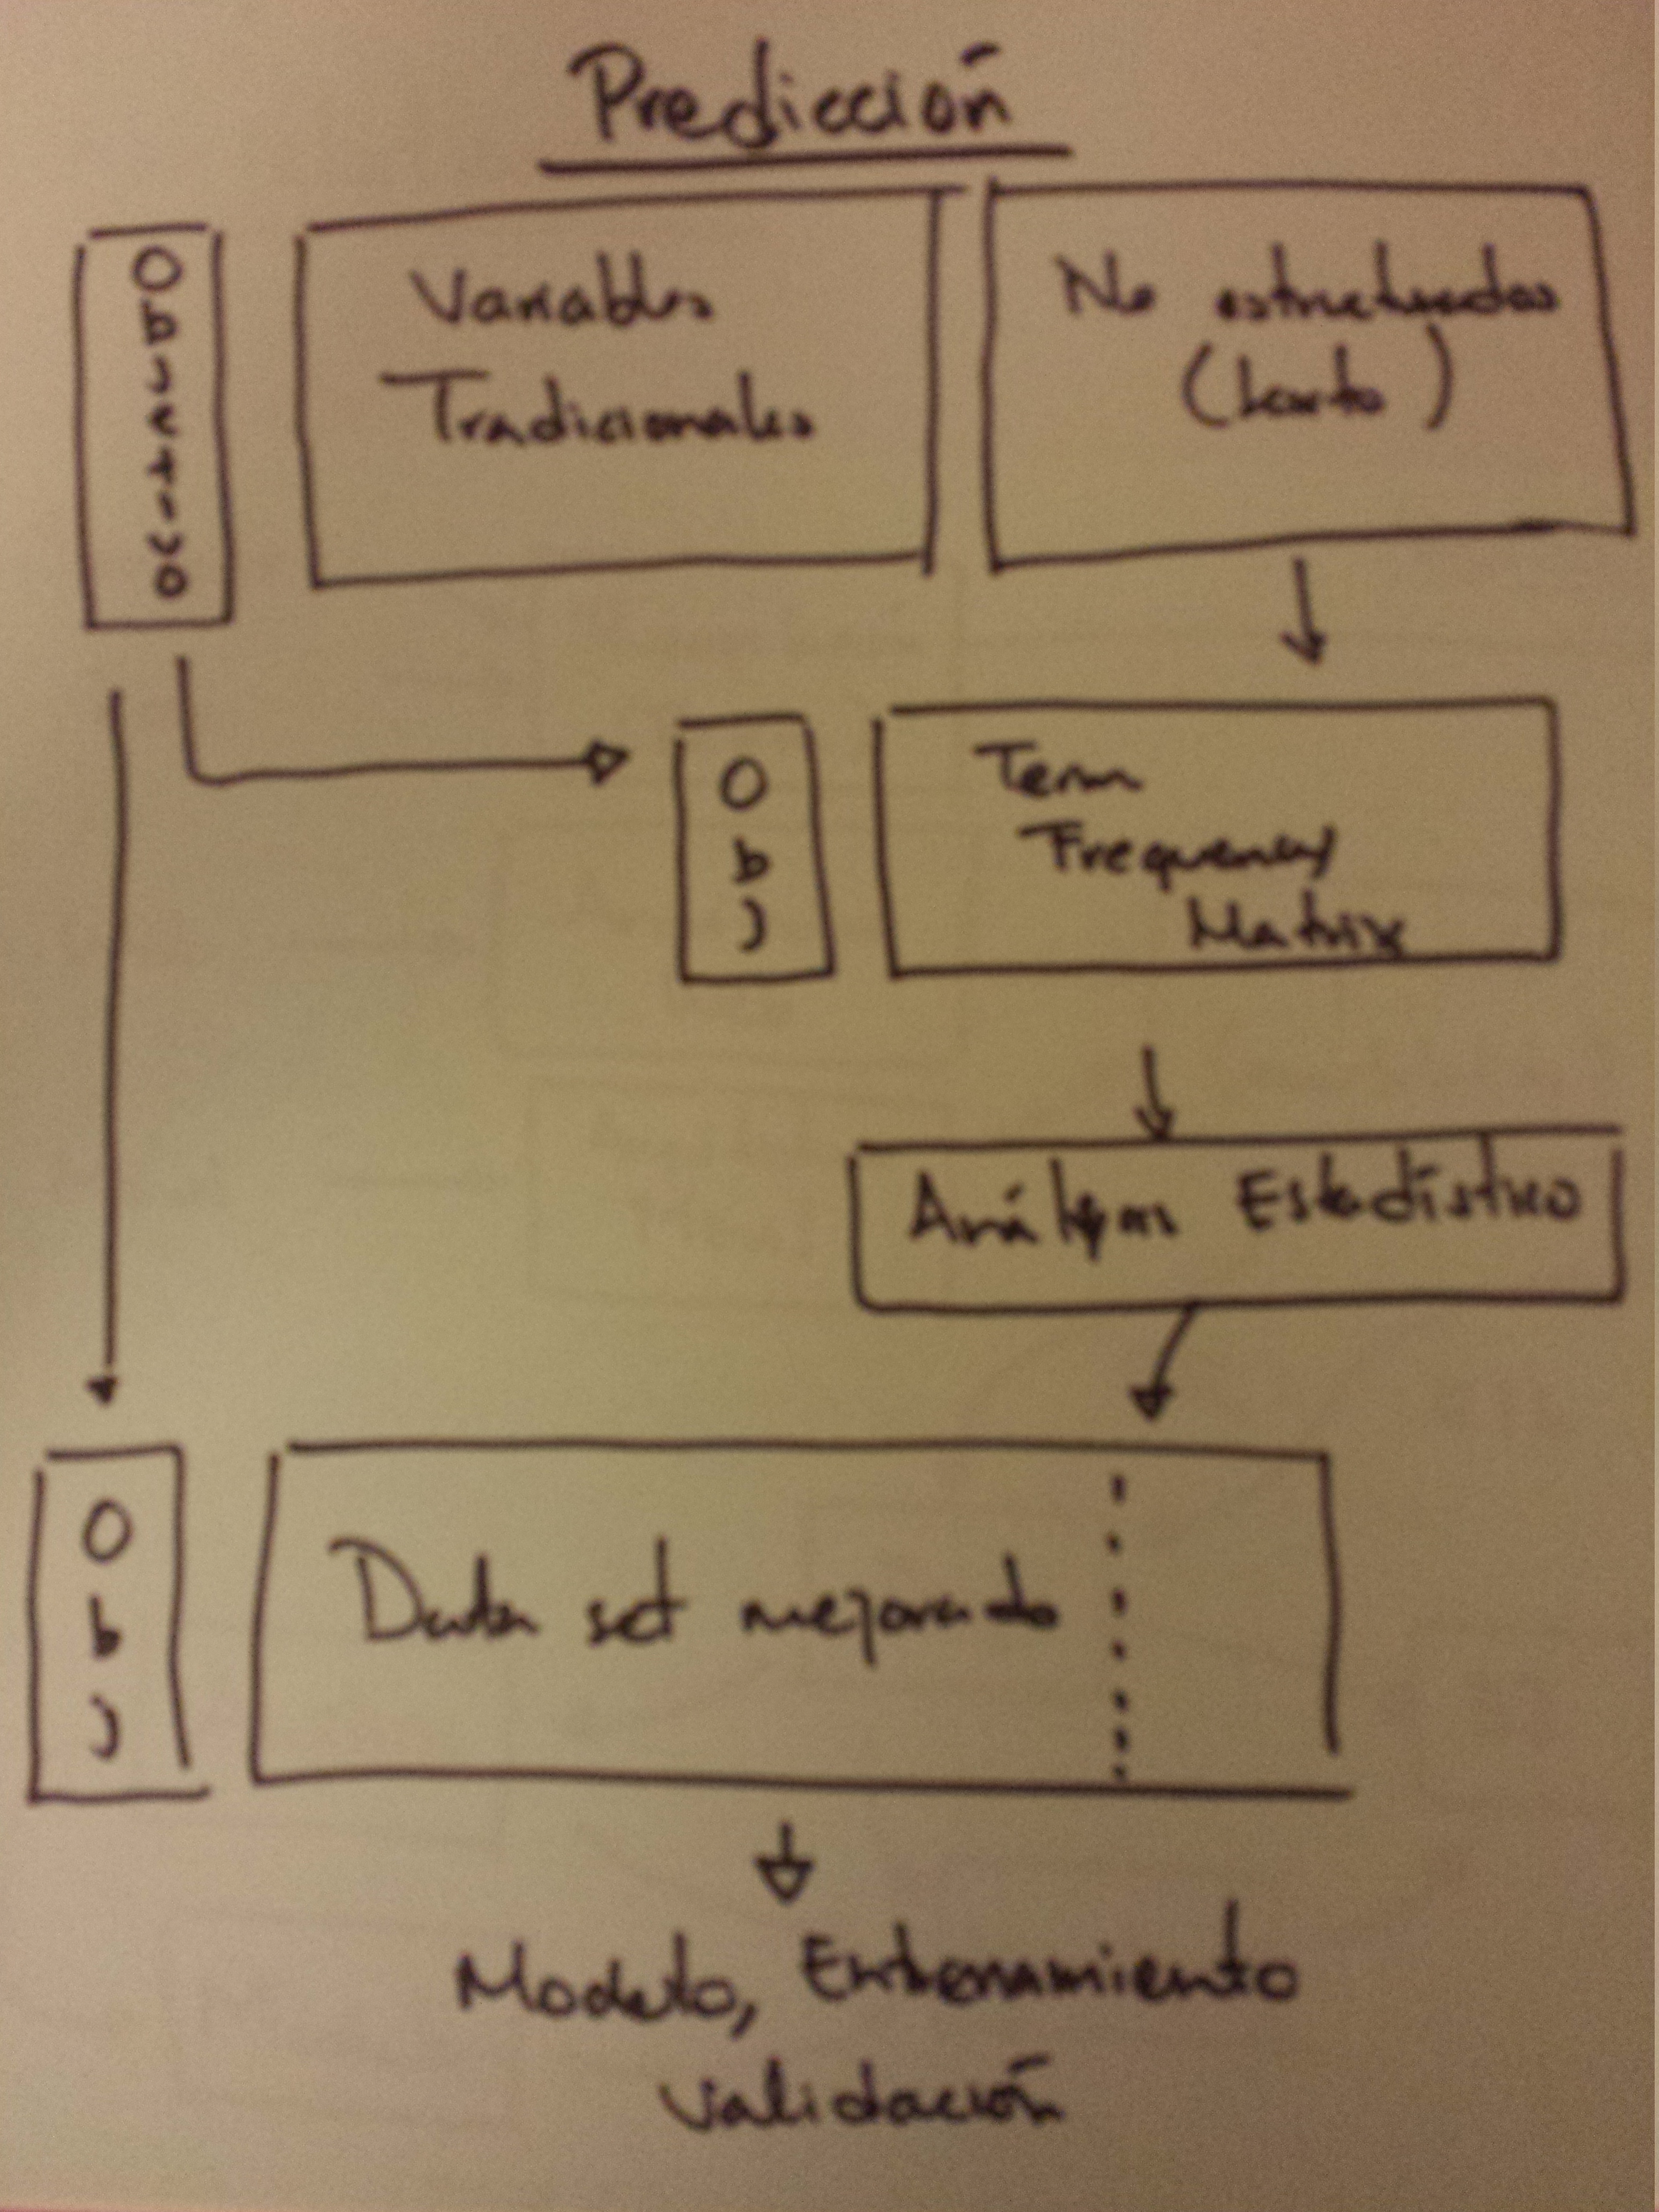 Predicción
Objetivo
Variables
Tradicionales
No estructuradas
(texto)
Obj
Term
Frequency
Matrix
Análisis Estadístico
Obj
Data set mejorado
Modelo, Entrenamiento
validación